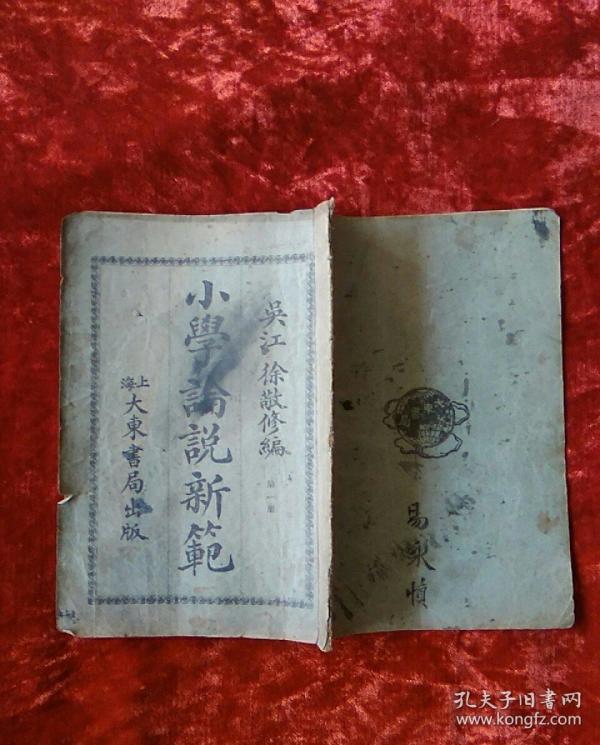 吳江徐敬修編
第一册
小學論說新範
上海
大東書局出版
易
孔夫子旧書网
www.kongfz.com